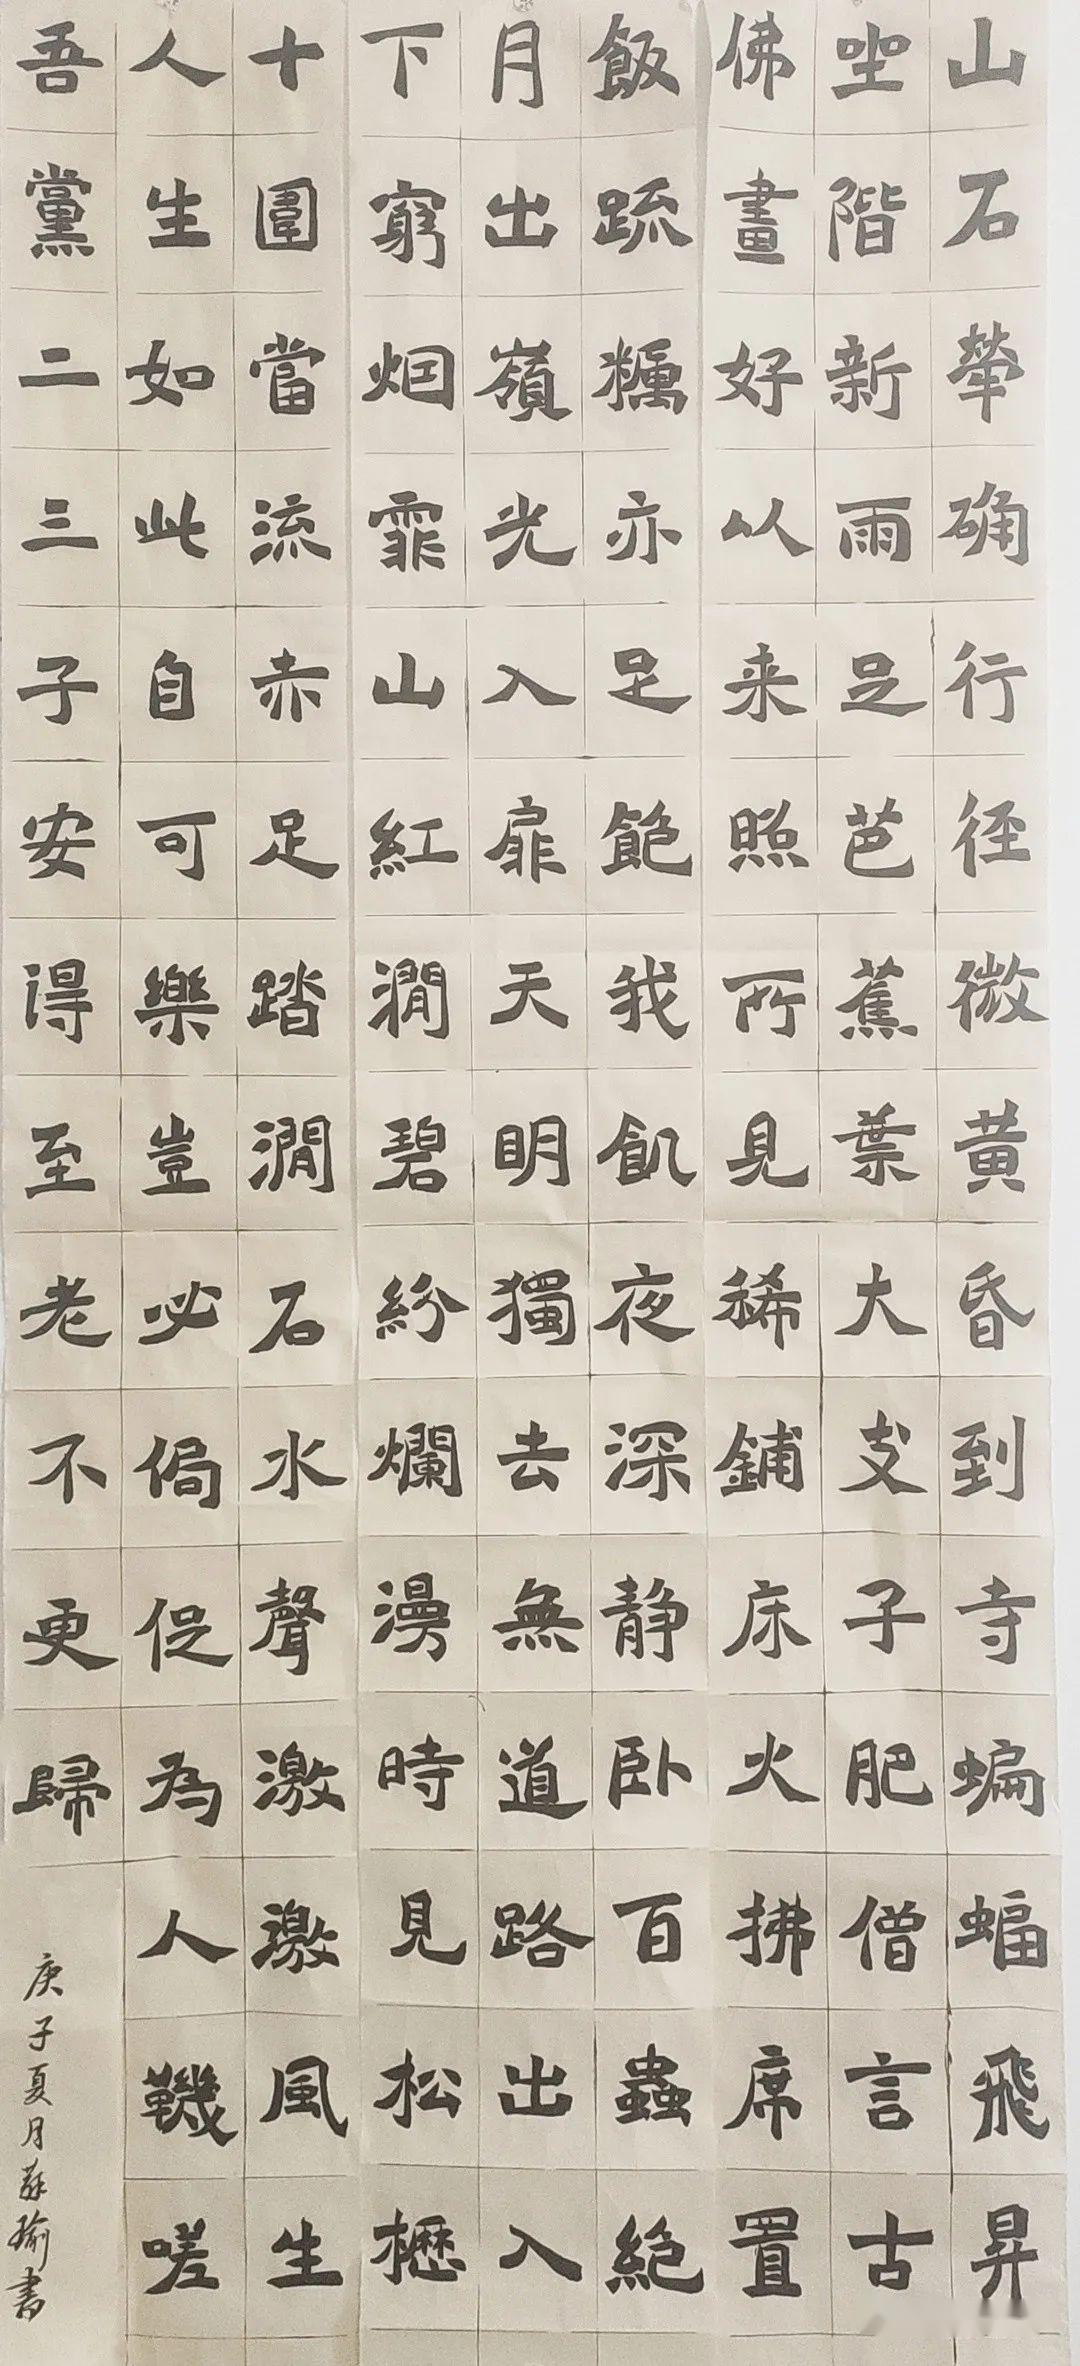 山石犖确行径微黄昏到寺蝙蝠飛昇
坐階新雨足芭蕉葉大支子肥僧言古
佛畫好以来照所見稀鋪床火拂席置
飯疏糲亦足飽我飢夜深静卧百蟲絶
月出嶺光入扉天明獨去無道路出入
下窮烟霏山紅澗碧紛爛漫時見松櫪
十圍當流赤足踏澗石水聲激激風生
人生如此自可樂豈必侷促為人鞿嗟
吾黨二三子安得至老不更歸
庚子夏月蘇瑜書